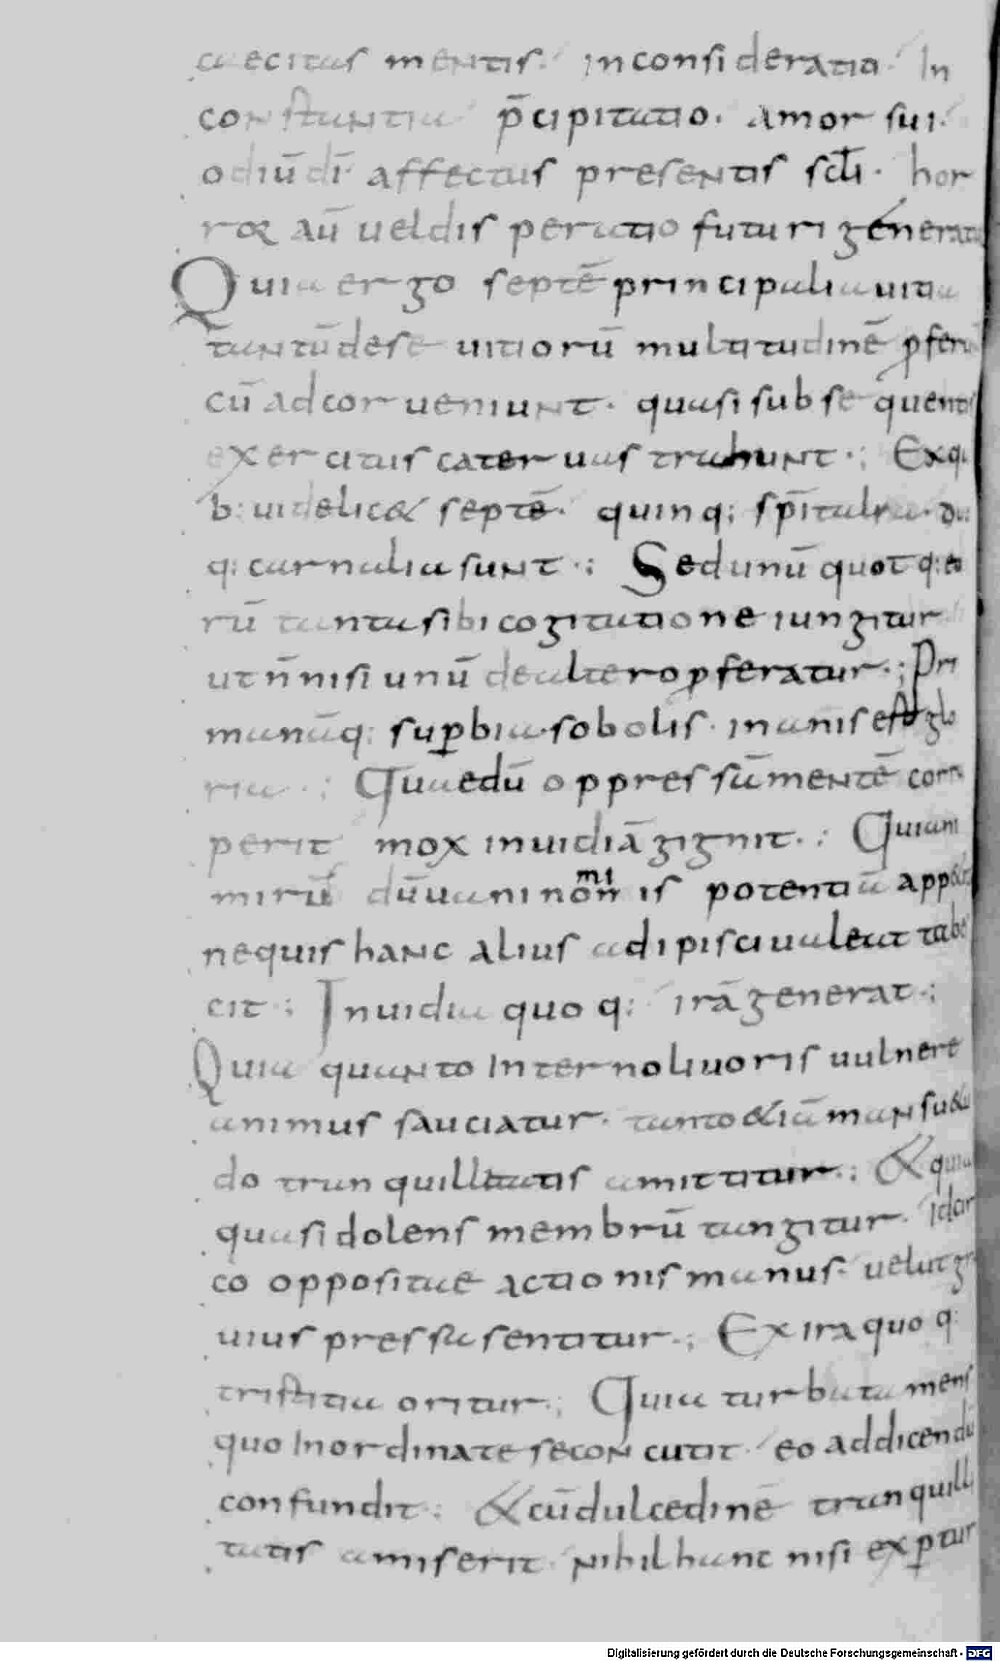 caecitas mentis. inconsideratio. In
constantia p̄cipitatio. Amor sui.
odiū dī affectus presentis scl̄i. hor
ror aū uel dis peratio futuri generat
Quia ergo septē principalia uitia
tantū dese uitiorū multitudinē pfer
cū ad cor ueniunt. quasi subse quentis
exercitus cateruas trahunt.; Ex qui
b: uidelic& septē. quinq; sp̄italia. du
q: carnalia sunt.; Sed unū quotq: eo
rū tanta sibi cogitatione iungitur
ut n̄nisi unū de altero pferatur.; Pri
manāq: supbia sobolis. inanis est glo
ria.; Quae dū oppressā mentē corr
perit mox inuidiā gignit.; Quiani
mirū dū uani nominis potentiā app&
nequis hanc alius adipisci ualeat tabe
cit.; Inuidia quoq: irā generat.;
Quia quanto interno liuoris uulnere
animus sauciatur. tanto &iā mansu&u
do tranquillitatis amittitur.; & quia
quasi dolens membrū tangitur. Idcir
co oppositae actionis manus. uelut gr
uius pressa sentitur.; Ex ira quoq:
tristitia oritur.; Quia turbata mens
quo inordinate se concutit. eo addicendū
confundit.; & cū dulcedinē tranquilli
tatis amiserit. nihil hanc nisi ex ptur
Digitalisierung gefördert durch die Deutsche Forschungsgemeinschaft - DFG